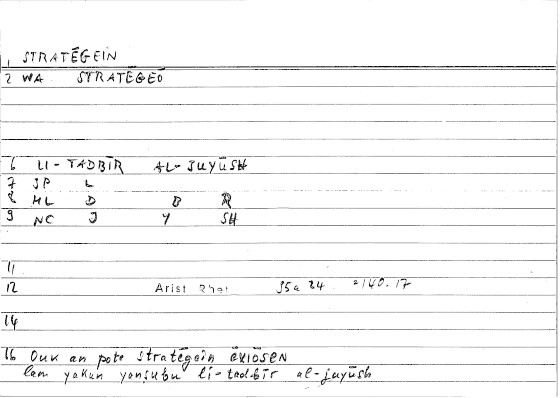 1 STRATĒGEIN
2 WA STRATĒGEŌ
6 LI-TADBĪR AL-JUYŪSH
7 SP L
8 ML D B R
9 NC J Y SH
11
12 Arist Rhet 95a 24 = 140.17
14
16 Ouk an pote stratēgein ēxiōsen
lam yakun yanṣubu li-tadbīr al-juyūsh